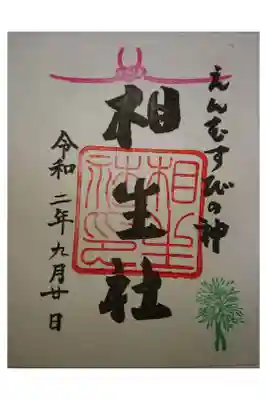 えんむすびの神
相生社
令和二年九月廿日
相生社印